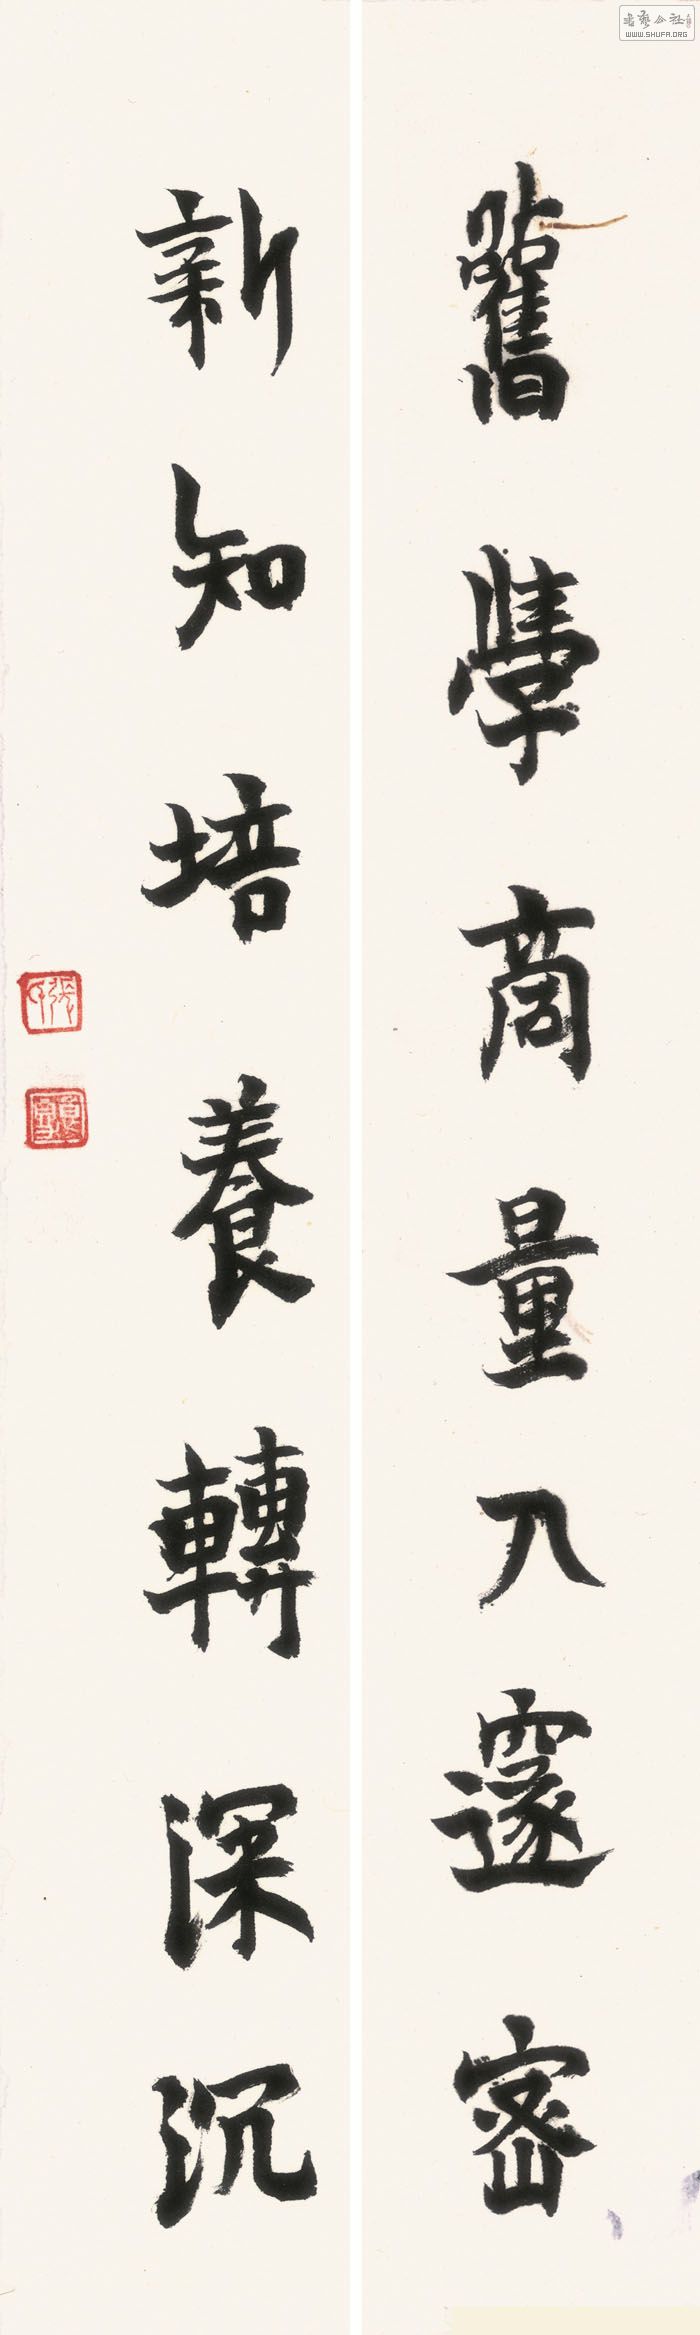 舊學商量入邃密
新知培養轉深沉
WWW.SHUFA.ORG